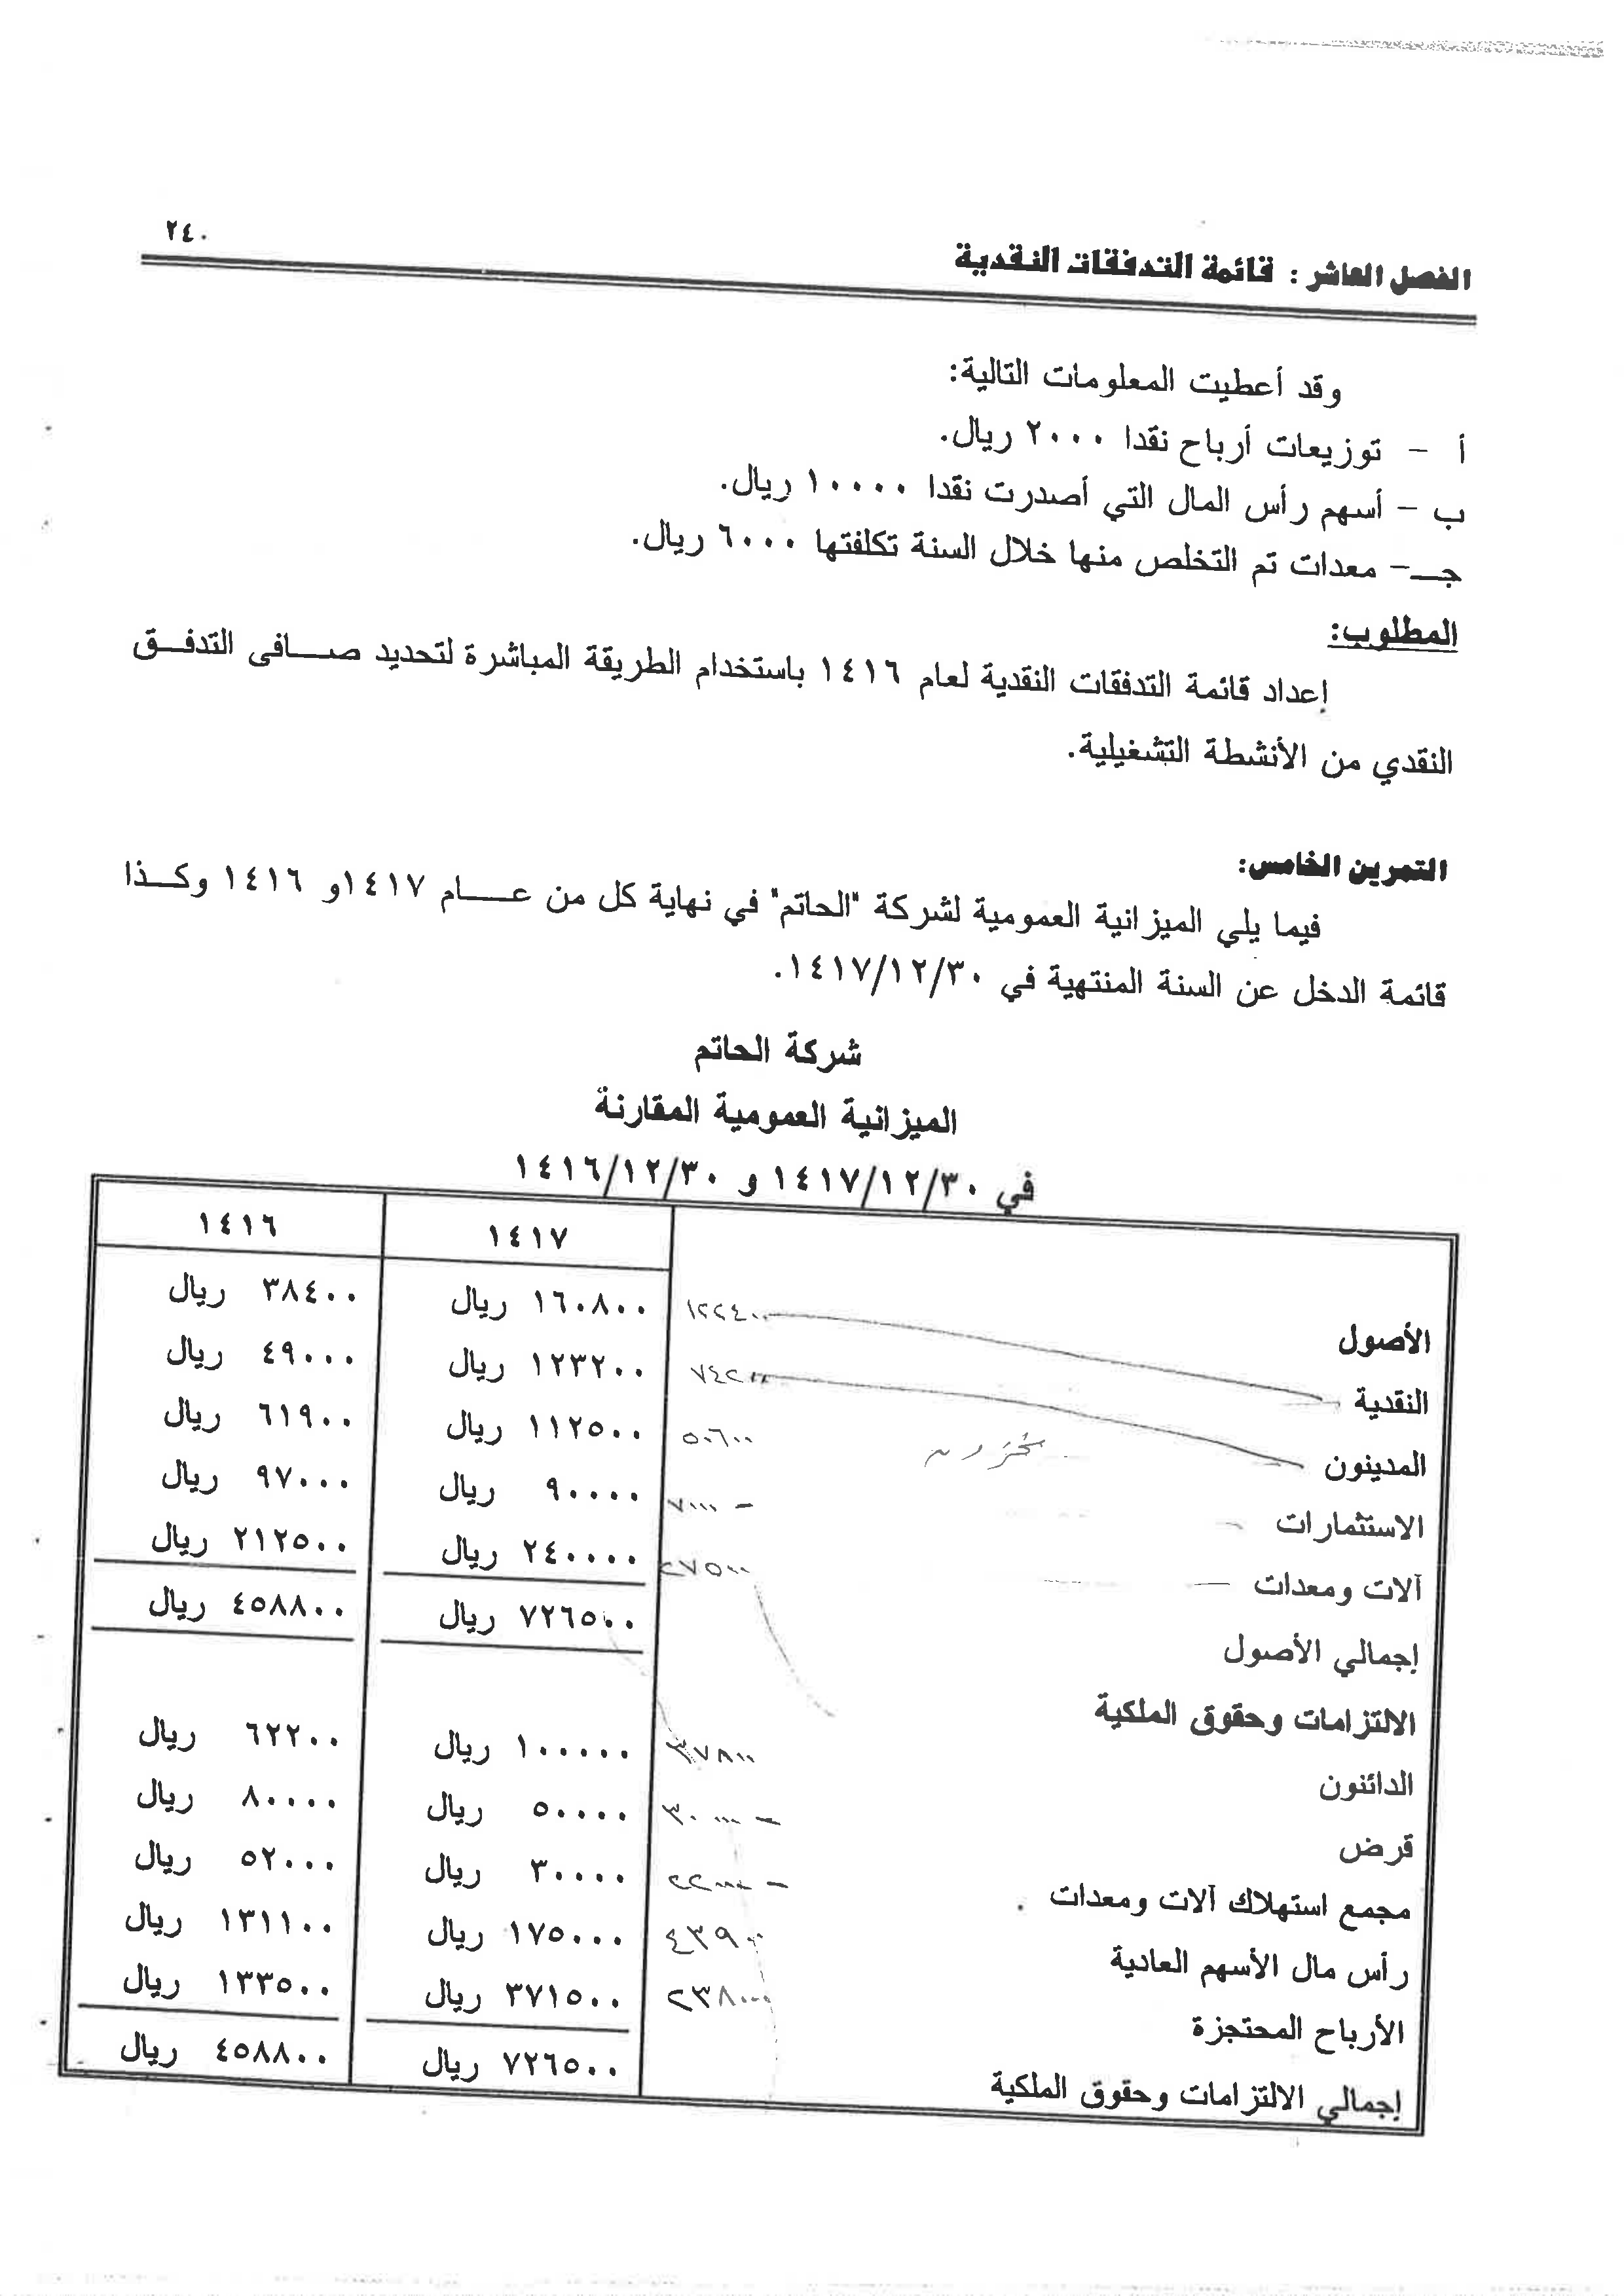 ٢٤٠
الفصل العاشر : قائمة التدفقات النقدية
وقد أعطيت المعلومات التالية:
أ - توزيعات أرباح نقدا ٢٠٠٠ ريال.
ب - أسهم رأس المال التي أصدرت نقدا ١٠٠٠٠ ريال.
جـ- معدات تم التخلص منها خلال السنة تكلفتها ٦٠٠٠ ريال.
المطلوب:
إعداد قائمة التدفقات النقدية لعام ١٤١٦ باستخدام الطريقة المباشرة لتحديد صافى التدفق
النقدي من الأنشطة التشغيلية.
التمرين الخامس:
فيما يلي الميزانية العمومية لشركة "الحاتم" في نهاية كل من عام ١٤١٧و ١٤١٦ وكذا
قائمة الدخل عن السنة المنتهية في ١٤١٧/١٢/٣٠.
شركة الحاتم
الميزانية العمومية المقارنة
في ١٤١٧/١٢/٣٠ و ١٤١٦/١٢/٣٠
١٤١٧ ١٤١٦
الأصول
النقدية ١٢٢٤٠٠ ١٦٠٨٠٠ ريال ٣٨٤٠٠ ريال
المدينون ٧٤٢٠٠ ١٢٣٢٠٠ ريال ٤٩٠٠٠ ريال
مخزون ٥٠٦٠٠ ١١٢٥٠٠ ريال ٦١٩٠٠ ريال
الاستثمارات - ٧٠٠٠ ٩٠٠٠٠ ريال ٩٧٠٠٠ ريال
آلات ومعدات ٢٧٥٠٠ ٢٤٠٠٠٠ ريال ٢١٢٥٠٠ ريال
إجمالي الأصول ٧٢٦٥٠٠ ريال ٤٥٨٨٠٠ ريال
الالتزامات وحقوق الملكية
الدائنون ٣٧٨٠٠ ١٠٠٠٠٠ ريال ٦٢٢٠٠ ريال
قرض - ٣٠٠٠٠ ٥٠٠٠٠ ريال ٨٠٠٠٠ ريال
مجمع استهلاك آلات ومعدات - ٢٢٠٠٠ ٣٠٠٠٠ ريال ٥٢٠٠٠ ريال
رأس مال الأسهم العادية ٤٣٩٠٠ ١٧٥٠٠٠ ريال ١٣١١٠٠ ريال
الأرباح المحتجزة ٢٣٨٠٠٠ ٣٧١٥٠٠ ريال ١٣٣٥٠٠ ريال
إجمالي الالتزامات وحقوق الملكية ٧٢٦٥٠٠ ريال ٤٥٨٨٠٠ ريال